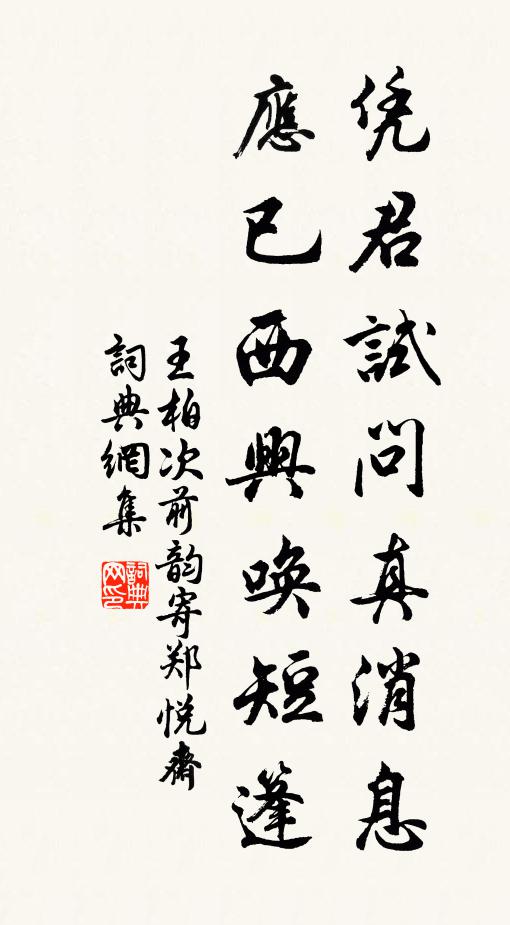 凭君試問真消息
應已西興喚短篷
王柏次前韵寄郑悦齋
詞典網集
詞典网印